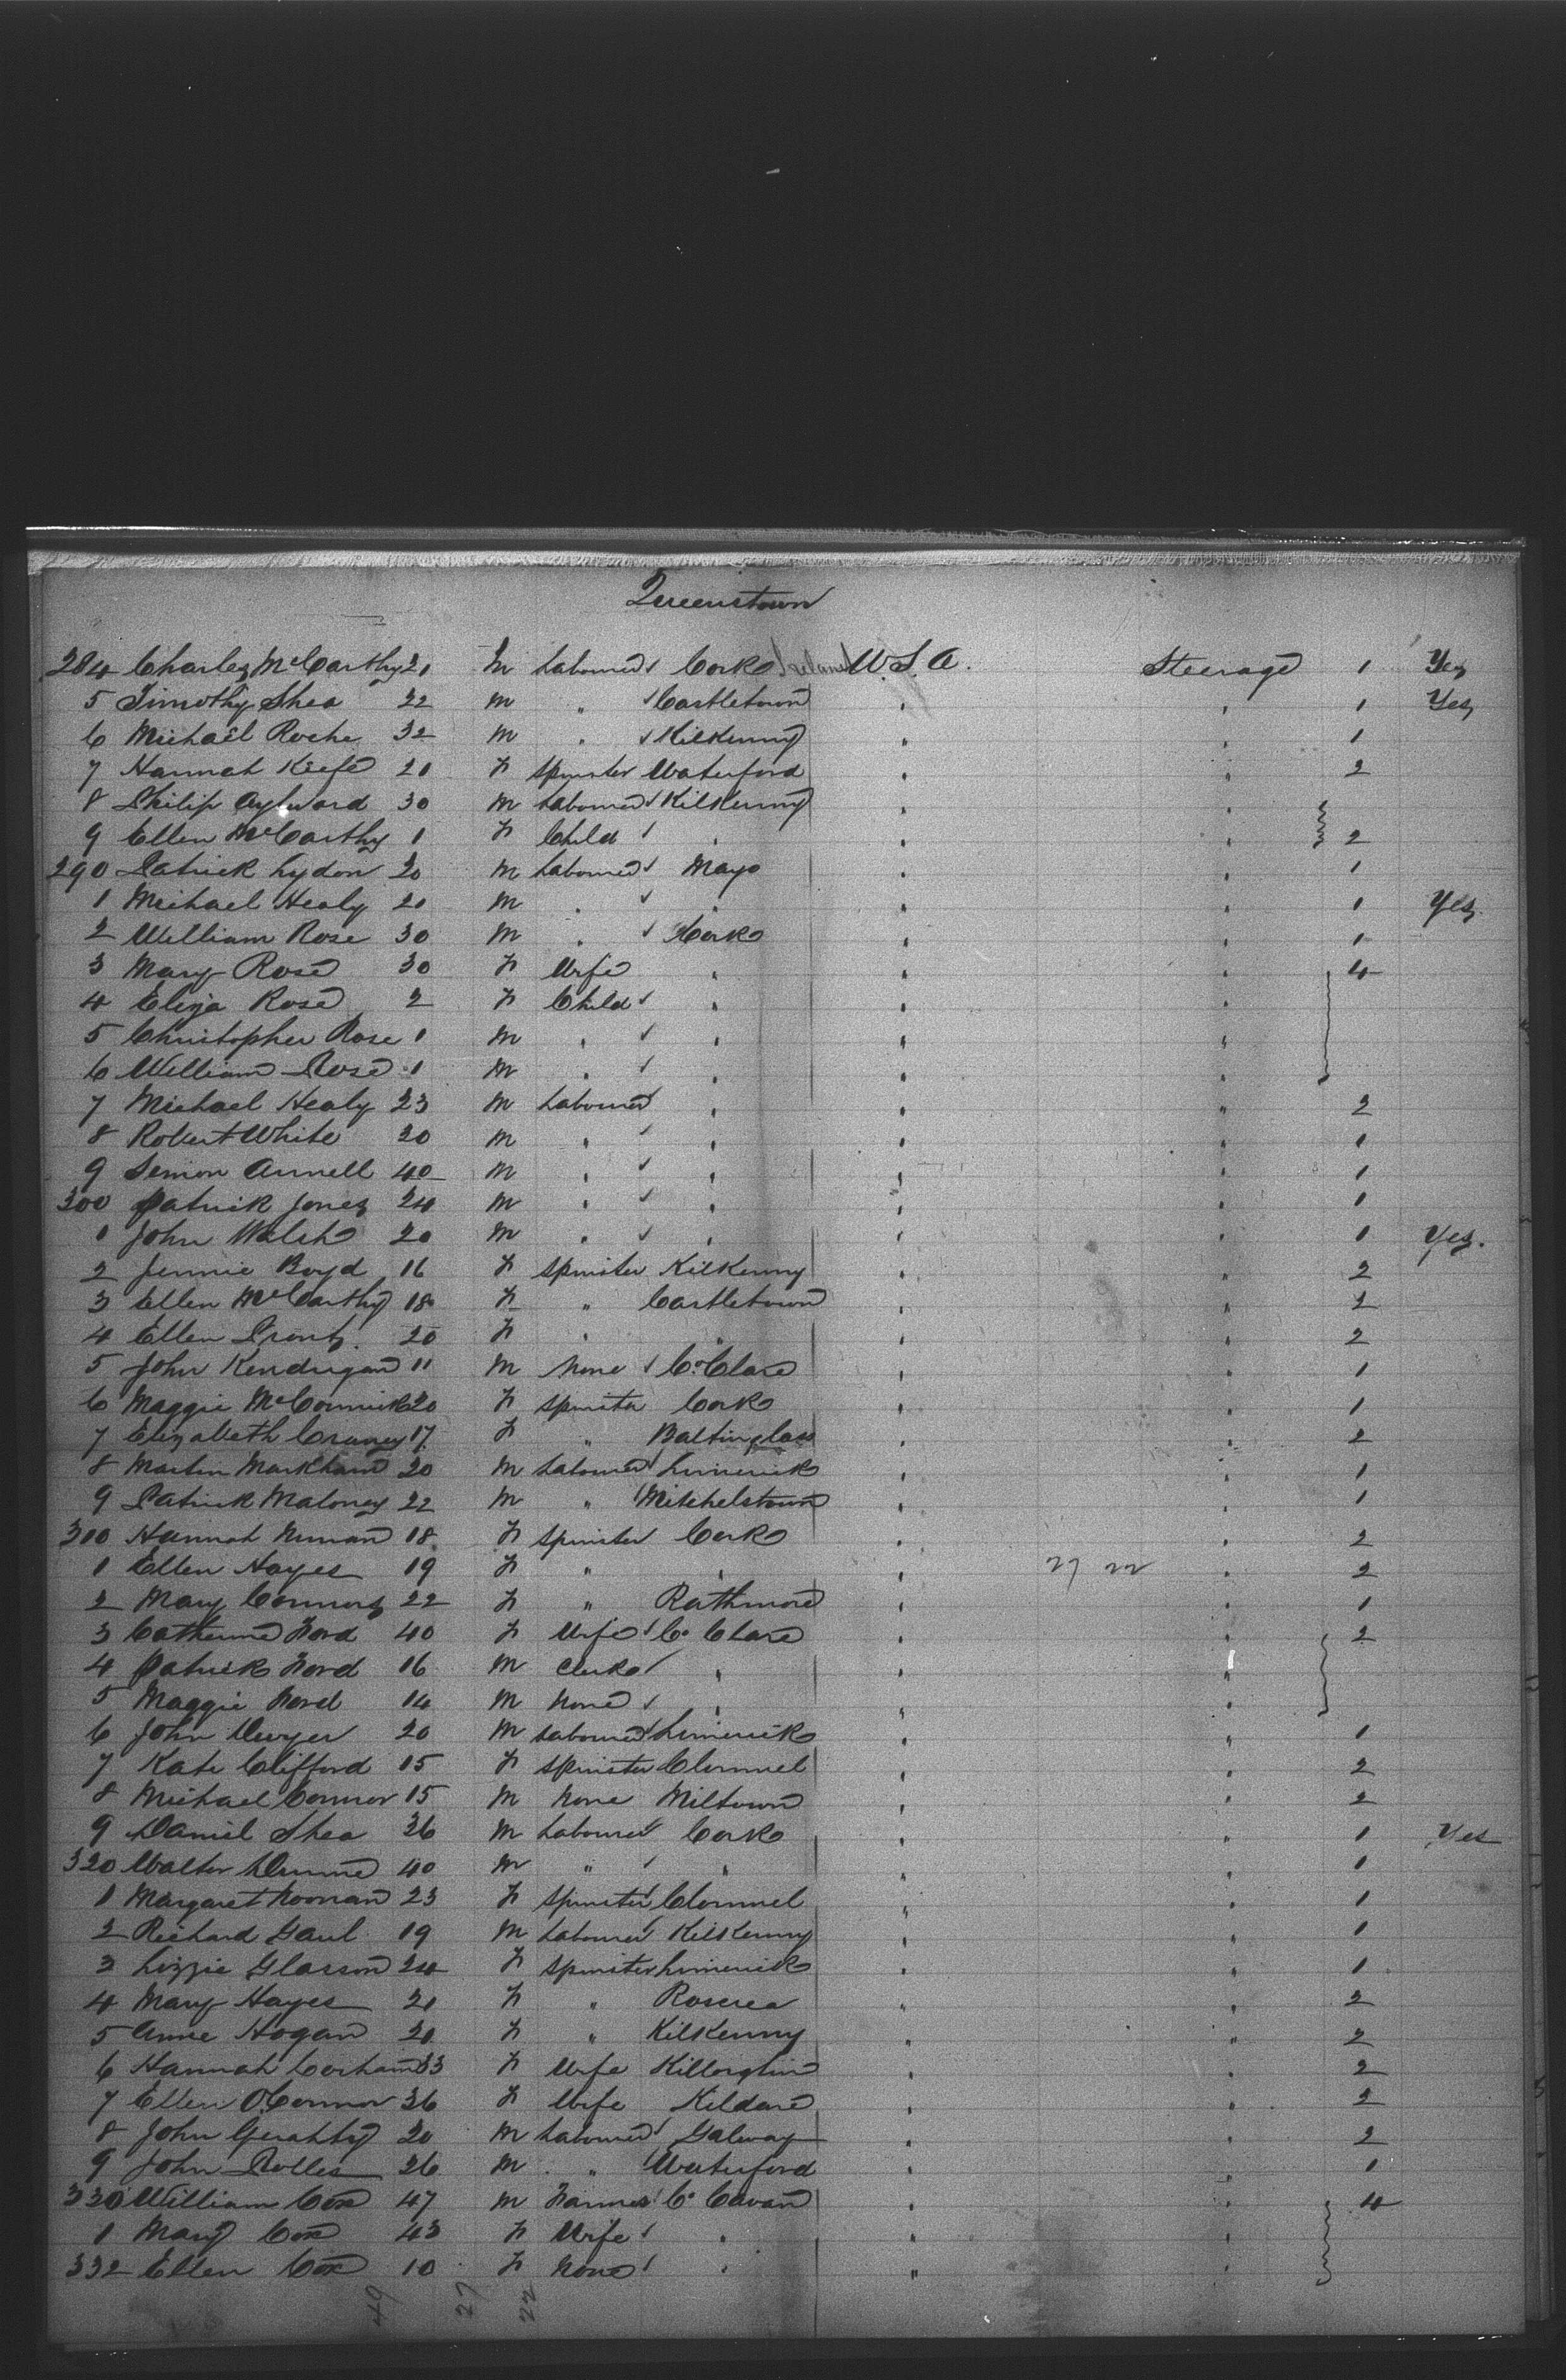 Queenstown
284 Charles McCarthy 21 M Labourer Cork Ireland U.S.A. Steerage 1 Yes
5 Timothy Shea 22 M " Castletown " " 1 Yes
6 Michael Roche 32 M " Kilkenny " " 1
7 Hannah Keefe 20 F Spinster Waterford " " 2
8 Philip Aylward 30 M Labourer Kilkenny " "
9 Ellen McCarthy 1 F Child " " " 2
290 Patrick Lydon 20 M Labourer Mayo " " 1
1 Michael Healy 20 M " " " " 1 Yes
2 William Rose 30 M " Cork " " 1
3 Mary Rose 30 F Wife " " " 4
4 Eliza Rose 2 F Child " " "
5 Christopher Rose 1 M " " " "
6 William Rose 1 M " " " "
7 Michael Healy 23 M Labourer " " " 2
8 Robert White 20 M " " " " 1
9 Simon Annell 40 M " " " " 1
300 Patrick Jones 24 M " " " " 1
1 John Walsh 20 M " " " " 1 Yes.
2 Jennie Boyd 16 F Spinster Kilkenny " " 2
3 Ellen McCarthy 18 F " Castletown " " 2
4 Ellen 20 F " " " " 2
5 John Kendrigan 11 M None Co. Clare " " 1
6 Maggie McCormick 20 F Spinster Cork " " 1
7 Elizabeth 17 F " Baltinglass " " 2
8 Martin Markham 20 M Labourer Limerick " " 1
9 Patrick Maloney 22 M " Mitchelstown " " 1
310 Hannah 18 F Spinster Cork " " 2
1 Ellen Hayes 19 F " " " 27 22 " 2
2 Mary Connors 22 F " Rathmore " " 1
3 Catherine Ford 40 F Wife Co. Clare " " 2
4 Patrick Ford 16 M Clerk " " "
5 Maggie Ford 14 M None " " "
6 John Dwyer 20 M Labourer Limerick " " 1
7 Kate Clifford 15 F Spinster Clonmel " " 2
8 Michael Connor 15 M None Miltown " " 2
9 Daniel Shea 36 M Labourer Cork " " 1 Yes
320 Walter Dunne 40 M " " " " 1
1 Margaret Noonan 23 F Spinster Clonmel " " 1
2 Richard Gaul 19 M Labourer Kilkenny " " 1
3 Lizzie Glasson 24 F Spinster Limerick " " 1
4 Mary Hayes 21 F " Roscrea " " 2
5 Annie Hogan 20 F " Kilkenny " " 2
6 Hannah 33 F Wife Killorglin " " 2
7 Ellen O'Connor 36 F Wife Kildare " " 2
8 John Geraghty 20 M Labourer Galway " " 2
9 John 26 M " Waterford " " 1
330 William Cox 47 M Farmer Co. Cavan " " 4
1 Mary Cox 43 F Wife " " "
332 Ellen Cox 10 F None " " "
49 27 22